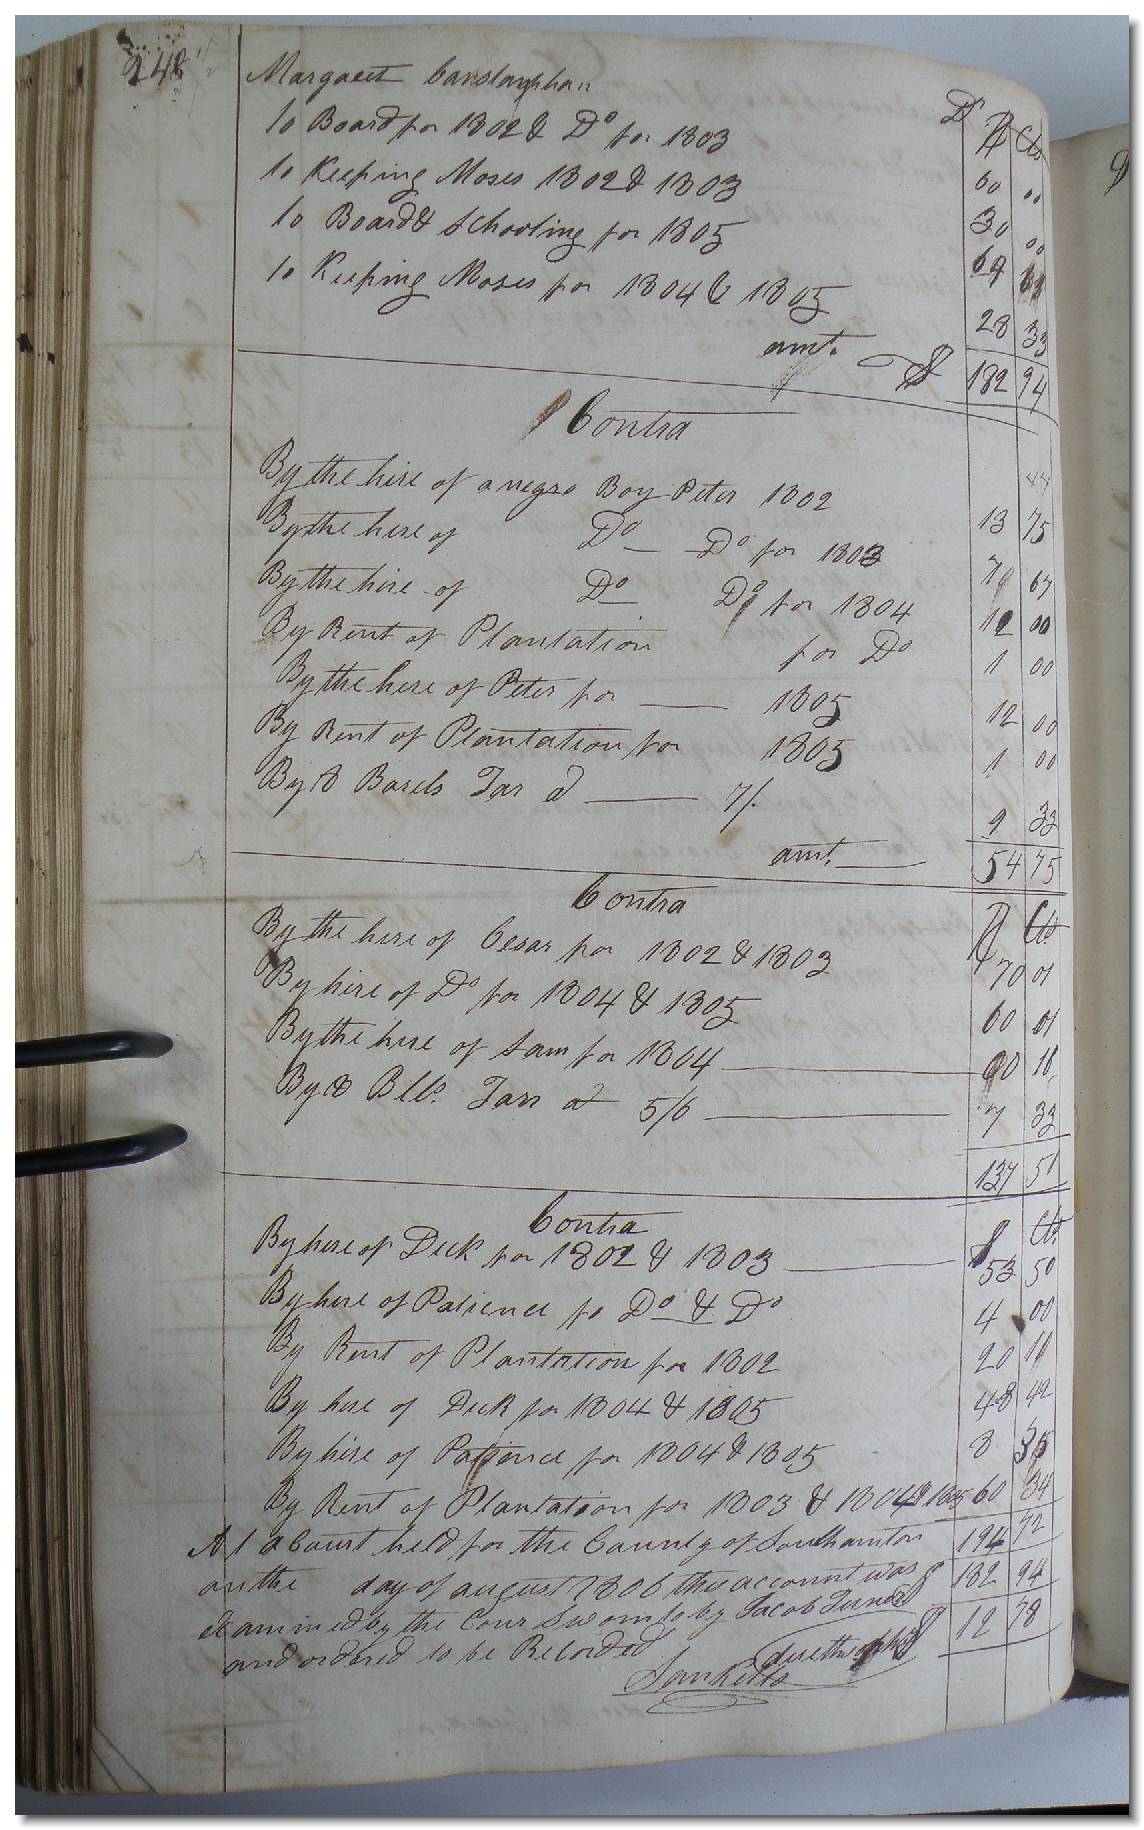 248
Margaret
Dr $ Cts
To Board for 1802 & Do for 1803 60 ..
To Keeping Moses 1802 & 1803 30 00
To Board & Schooling for 1805 64 61
To Keeping Moses for 1804 & 1805 28 33
amt. $ 182 94
Contra
By the hire of a negro Boy Peter 1802 13 75
By the hire of Do Do for 1803 7 67
By the hire of Do Do for 1804 12 00
By Rent of Plantation for Do 1 00
By the hire of Peter for 1805 12 00
By Rent of Plantation for 1805 1 00
By 8 Barels Tar @ 7/. 9 33
amt. 54 75
Contra $ Cts
By the hire of Cesar for 1802 & 1803 70 01
By hire of Do for 1804 & 1805 60 01
By the hire of Sam for 1804 00 16
By 8 Blls. Tarr @ 5/6 7 33
137 51
Contra $ Cts
By hire of Dick for 1802 & 1803 53 50
By hire of Patience fo Do & Do 4 00
By Rent of Plantation for 1802 20 11
By hire of Dick for 1804 & 1805 48 42
By hire of Patience for 1804 & 1805 8 35
By Rent of Plantation for 1803 & 1804 & 1805 60 34
At a Court held for the County of Southamton 194 72
on the day of august 1806 this account was $ 182 94
Examined by the Cour Sworn to by Jacob $ 12 78
and ordered to be Recorded due the
Sam Kello